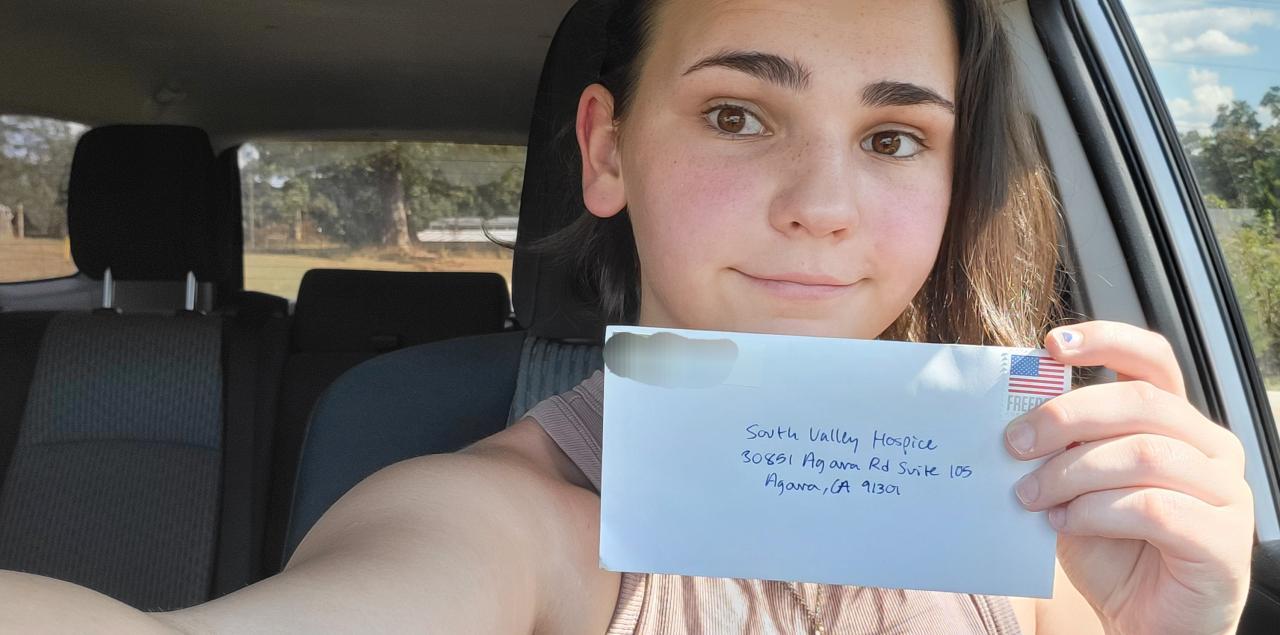 FREE
South Valley Hospice
30851 Agara Rd Suite 105
Agara, CA 91301